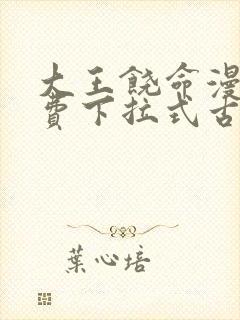 大王饶命漫
费下拉式古
葉心培